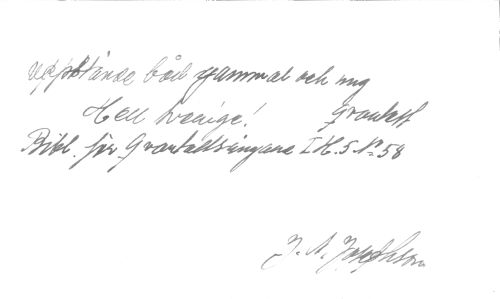 Uppstånde båd gammal och ung
Hell Sverige!
Bibl. för Qvartettsångare I H. 5 No 58
J. A. Josephson